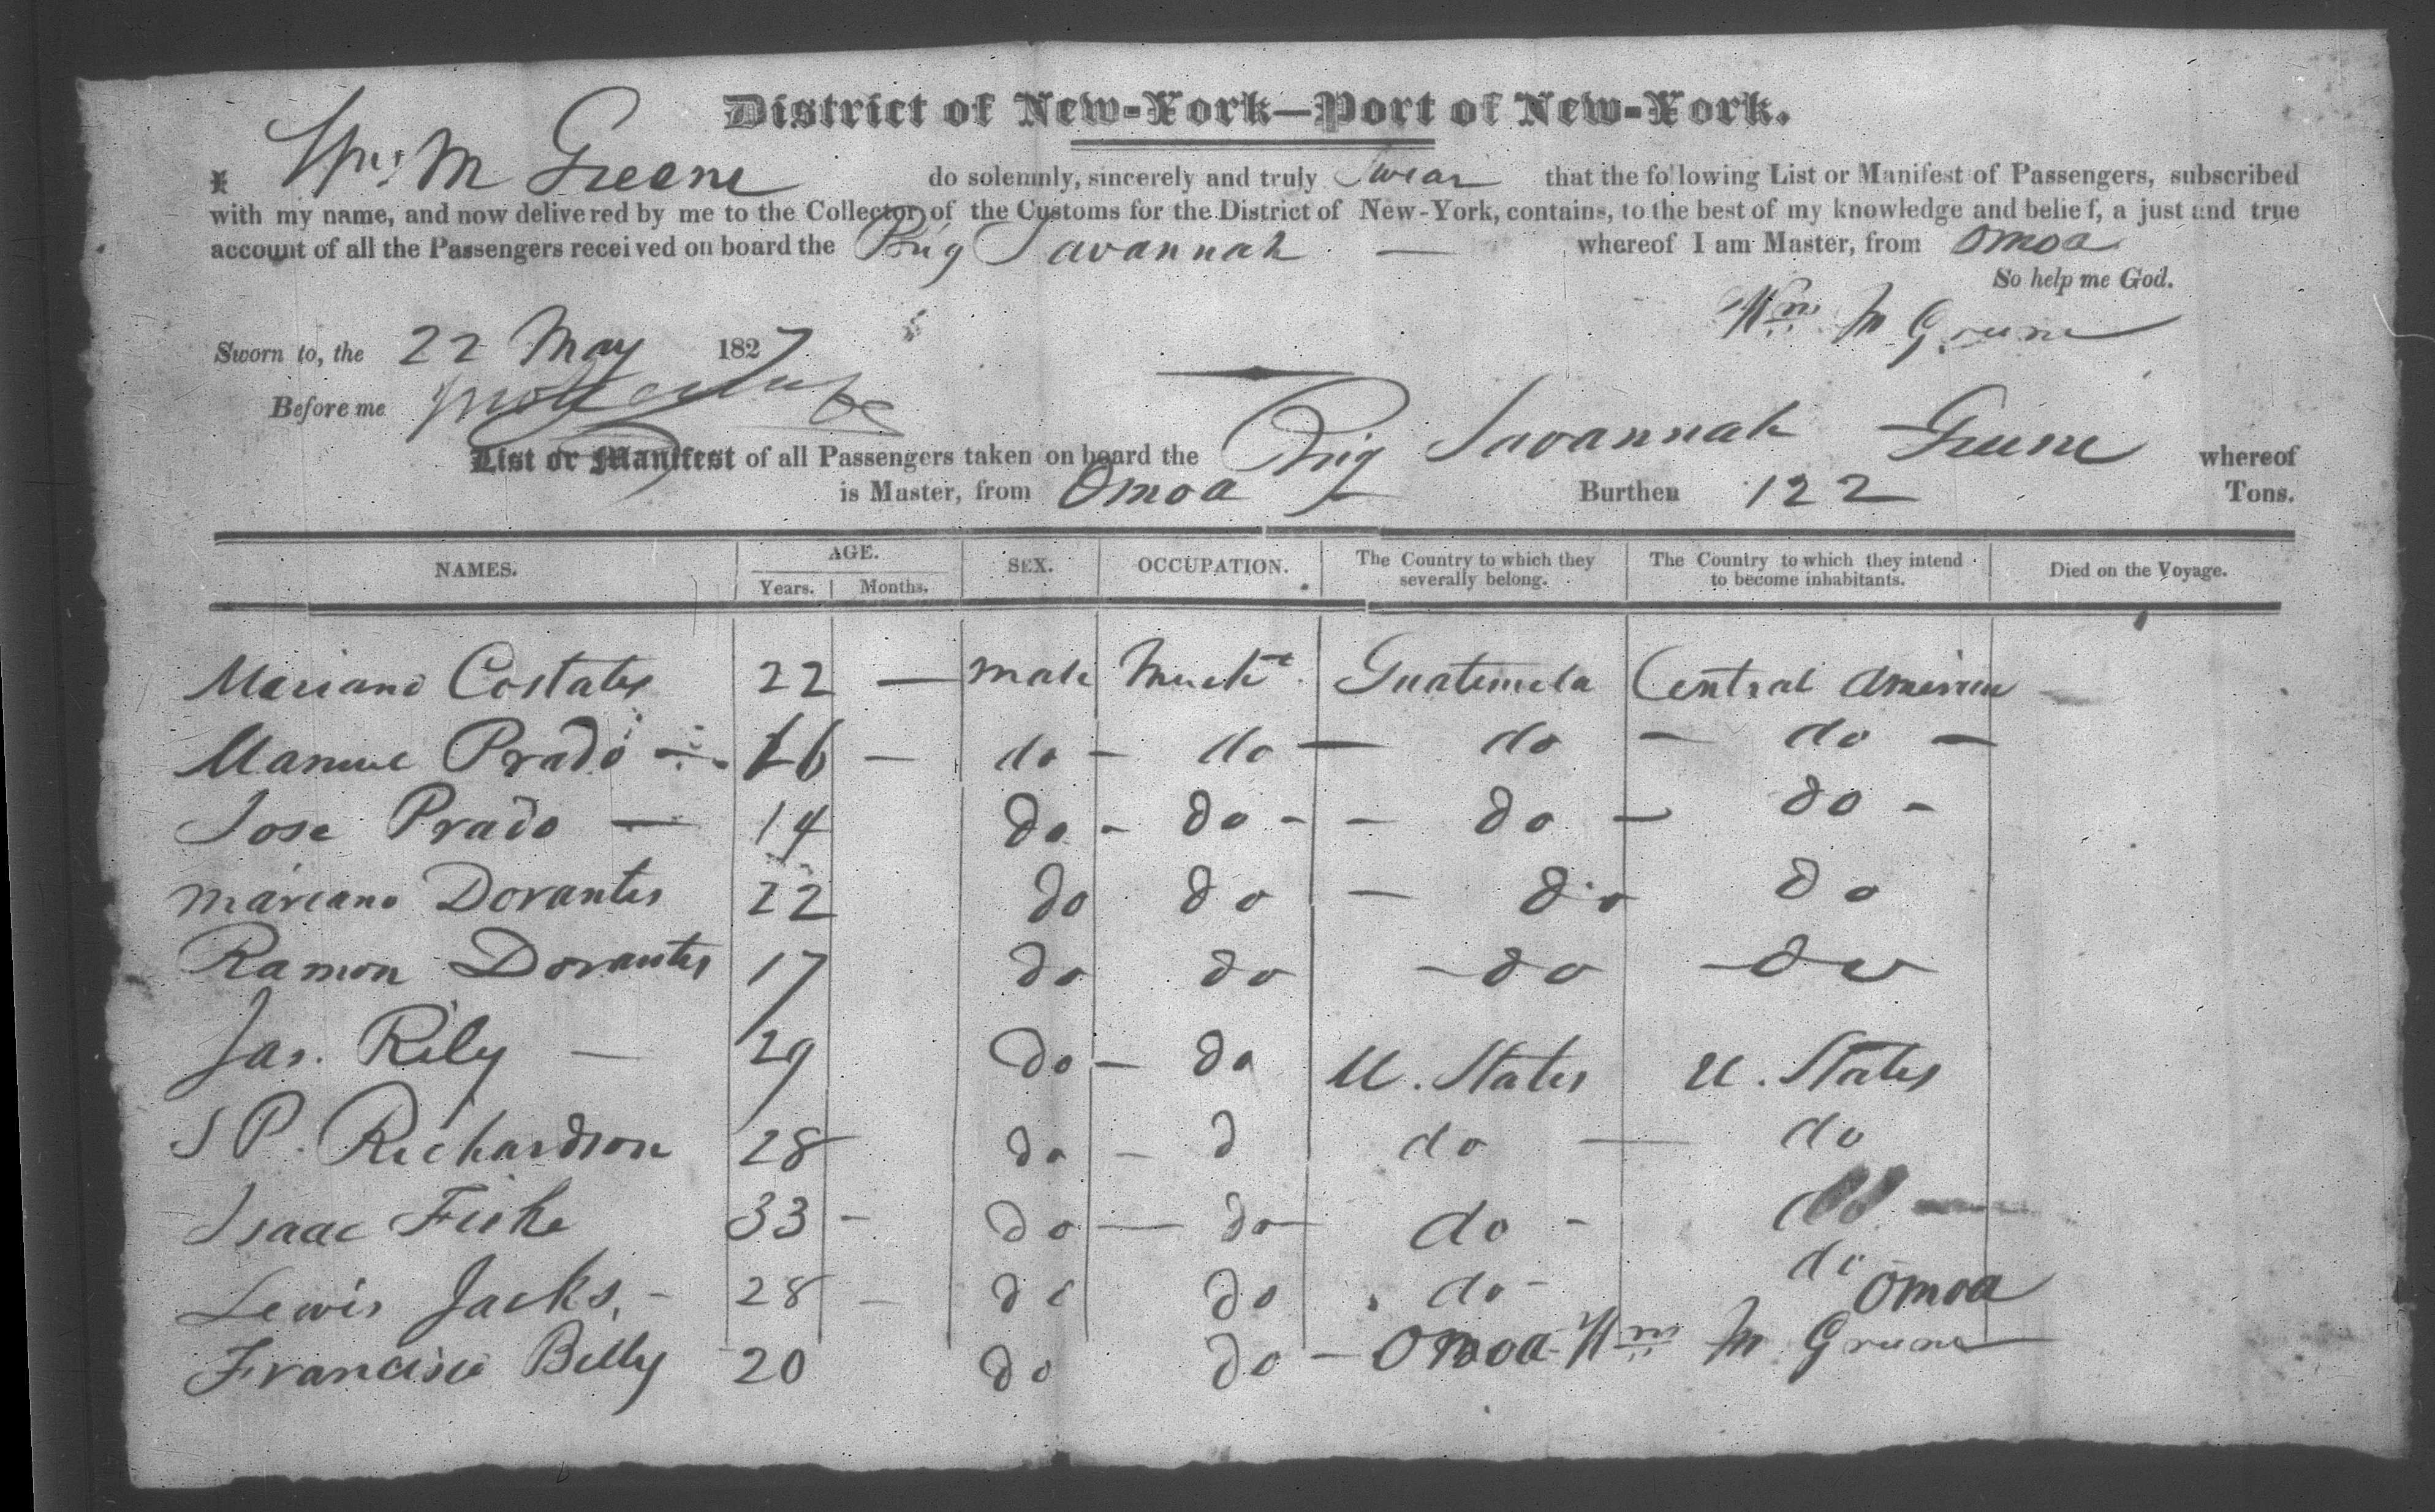 District of New-York—Port of New-York.
I Wm M Greene do solemnly, sincerely and truly Swear that the following List or Manifest of Passengers, subscribed
with my name, and now delivered by me to the Collector of the Customs for the District of New-York, contains, to the best of my knowledge and belief, a just and true
account of all the Passengers received on board the Brig Savannah — whereof I am Master, from Omoa
So help me God.
Wm M Greene
Sworn to, the 22 May 1827
Before me
List or Manifest of all Passengers taken on board the Brig Savannah Greene whereof
is Master, from Omoa Burthen 122 Tons.
NAMES. AGE. SEX. OCCUPATION. The Country to which they severally belong. The Country to which they intend to become inhabitants. Died on the Voyage.
Years. Months.
Mariano Costales 22 — male Mercht. Guatemela Central America
Manuel Prado — 16 — do — do — do — do —
Jose Prado — 14 do - do - - do — do -
Mareano Dorantes 22 do do — do do
Ramon Dorantes 17 do do — do — do
Jas. Rily — 29 do — do U. States U. States
S P. Richardson 28 do — d do — do
Isaac Fiske 33 - do — do do - do
Lewis Jacks, - 28 — do do do - do
Francisco Billy 20 do do — Omoa Omoa
Wm M Greene